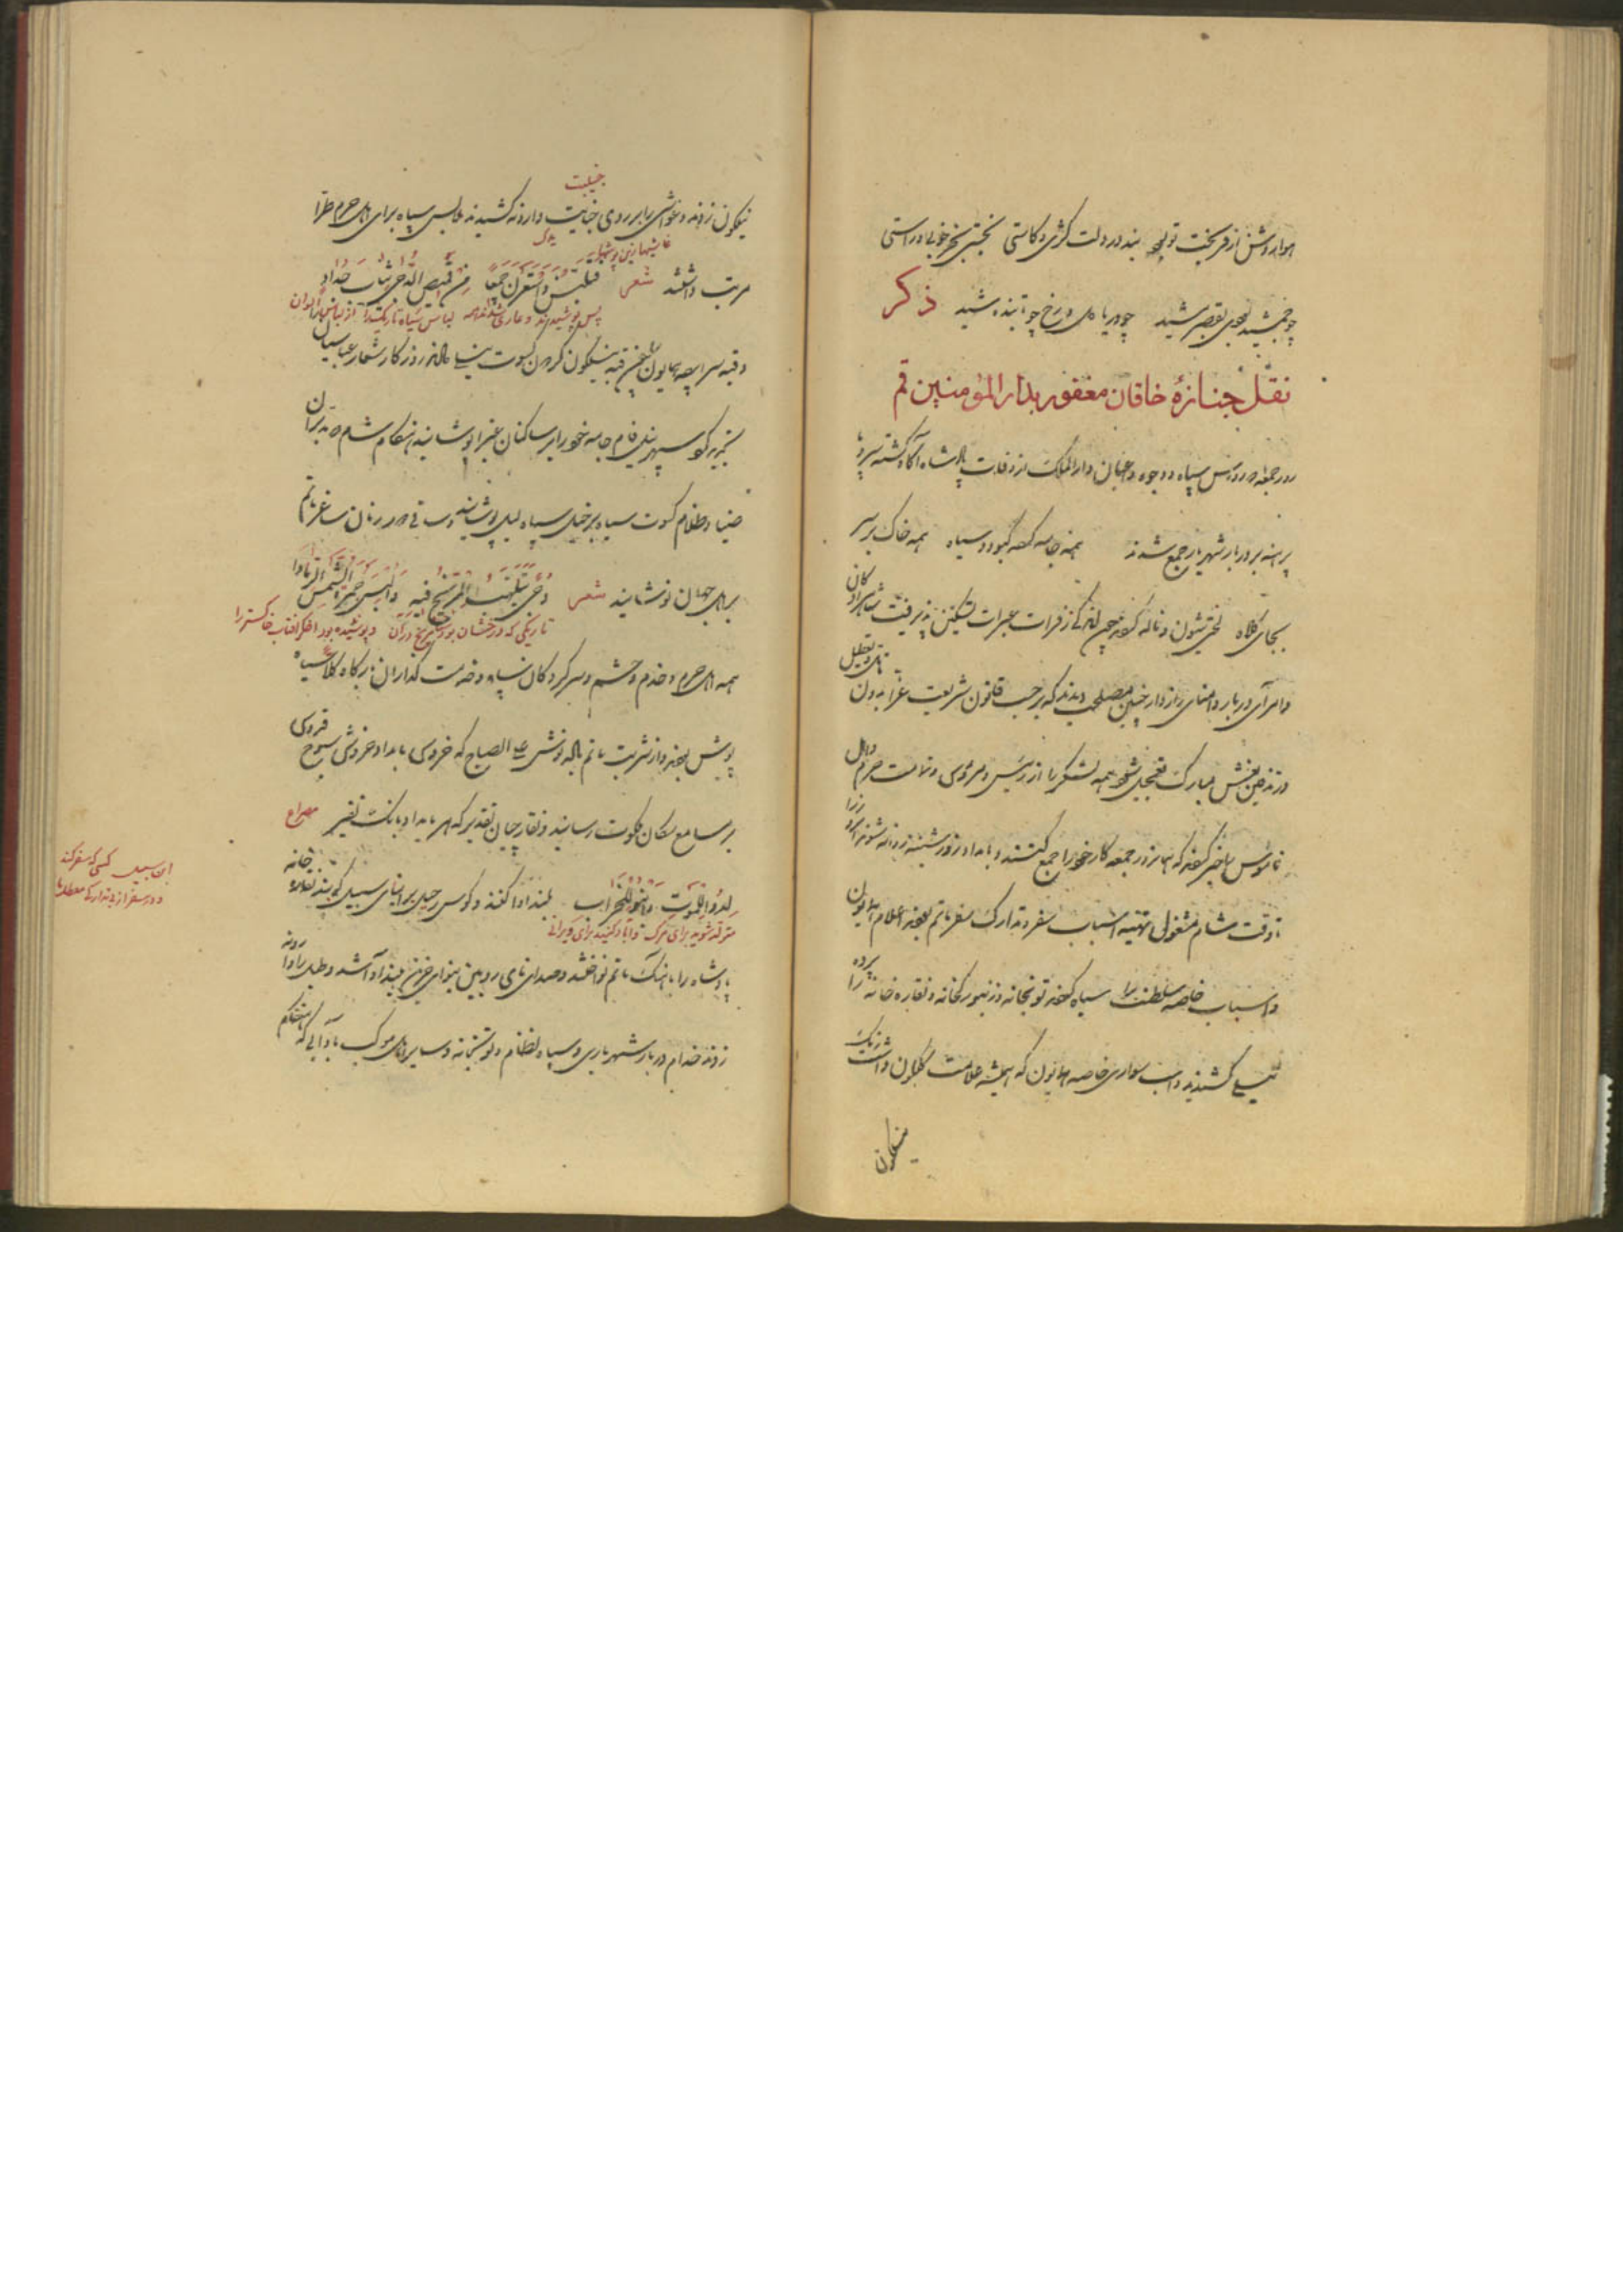 هوا روشن از فر بخت تو بود بنه در دولت کژی و کاستی نجستی بجز خوبی و راستی
چو جمشید بودی بقصر مشید چو دریا دل و رخ چو تابنده شید ذکر
نقل جنازهٔ خاقان مغفور بدار المؤمنین قم
روز جمعه سپاه و وجوه و اعیان دار الملک از وفات پادشاه آگاه گشته سر و پا
برهنه بر دربار شهریار جمع شدند همه جامه کرده کبود و سیاه همه خاک بر سر
بجای کلاه لختی بشیون و ناله کردند چون اندکی زفرات عبرات تسکین پذیرفت شاهزادگان
و امرای دربار و امنای رازدار چنین مصلحت دیدند که بر حسب قانون شریعت غرا بدون تأنی و تعطیل
در تدفین نعش مبارک تعجیل شود همه لشکر را از رئیس و مرؤس و تمامت حرم و اهل
ناموس را خبر کردند که همانروز جمعه کار خود را جمع کنند و بامداد روز شنبه روانه شوند آنروز را
تا وقت شام مشغول تهیه اسباب سفر و تدارک سفر ماتم بودند اعلام همایون
و اسباب خاصه سلطنت را سیاه کرده توپخانه و زنبورکخانه و نقاره خانه را پرده
نیلی کشیدند و اسب سواری خاصه همایون که همیشه علامت گلگون داشت رنگ
نیلگون
جنیبت
نیلگون زدند و غواشی را بر روی جنایب وارونه کشیدند ملابس سیاه برای اهل حرم طرا
یدک
غاشیها زین پوشها
مرتب داشتند شعر فلبسن و استعرن جمعا من قمیص الدجی ثیاب حداد
پس پوشیدند و عاری شدند همه لباس سیاه تاریک را از لباس الوان
و قبه سرا پرده همایون نیلگون کردن کسوت روزگار شعار عباسیان
سپهر نیلی فام جامه خود را بر ساکنان غبرا پوشانید هنگام شام
ضیا و ظلام کسوت سیاه بر خیل سپاه لیل پوشانید و ساقی دور زمان ساغر ماتم
براهل جهان نوشانید شعر دجی تلهب المریخ فیه و البس جمرة الشمس الرمادا
تاریکی که درخشان بود مریخ در آن و پوشیده بود اخگر آفتاب خاکستر را
همه اهل حرم و خدم و حشم و سرکردگان سپاه و خدمت گذاران درگاه کلا سیاه
پوش بودند و از شربت ماتم پیاله نوش علی الصباح که خروس بامداد خروش سبوح قدوس
بر مسامع سکان ملکوت رسانید و نقارچیان تقدیر که هر بامداد بانگ نفیر مصراع
لدوا للموت و ابنوا للخراب بلند آوا کنند و کوس رحیل بر ابنای سبیل کوبند نقاره خانه
متولد شوید برای مرگ و آباد کنید برای ویرانی
ابن سبیل کسی که سفر کند
پادشاه را بآهنگ ماتم نواختند و صدای نای رویین بنوای حزین بلند آوا شد و طبل را وارونه
زدند خدام دربار شهریاری و سپاه نظام و توپخانه و سایر اهل موکب بآدابی که هنگام